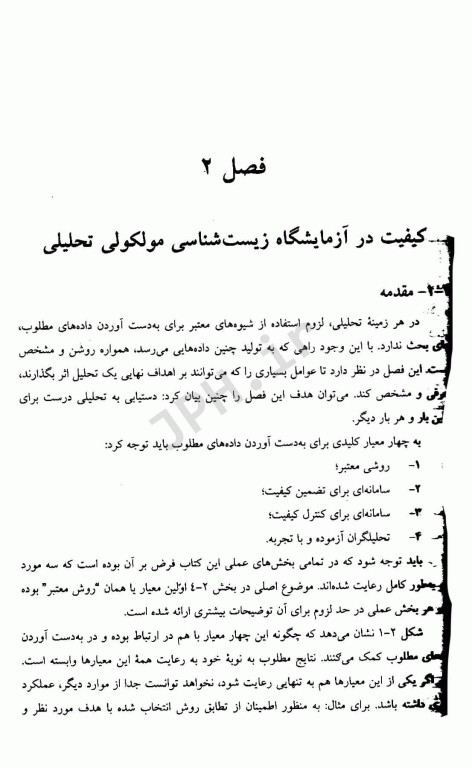 فصل ۲
کیفیت در آزمایشگاه زیست‌شناسی مولکولی تحلیلی
۲-۱- مقدمه
در هر زمینهٔ تحلیلی، لزوم استفاده از شیوه‌های معتبر برای به‌دست آوردن داده‌های مطلوب،
جای بحث ندارد. با این وجود راهی که به تولید چنین داده‌هایی می‌رسد، همواره روشن و مشخص
نیست. این فصل در نظر دارد تا عوامل بسیاری را که می‌توانند بر اهداف نهایی یک تحلیل اثر بگذارند،
معرفی و مشخص کند. می‌توان هدف این فصل را چنین بیان کرد: دستیابی به تحلیلی درست برای
این بار و هر بار دیگر.
به چهار معیار کلیدی برای به‌دست آوردن داده‌های مطلوب باید توجه کرد:
۱- روشی معتبر؛
۲- سامانه‌ای برای تضمین کیفیت؛
۳- سامانه‌ای برای کنترل کیفیت؛
۴- تحلیلگران آزموده و با تجربه.
باید توجه شود که در تمامی بخش‌های عملی این کتاب فرض بر آن بوده است که سه مورد
به‌طور کامل رعایت شده‌اند. موضوع اصلی در بخش ۲-۴ اولین معیار یا همان "روش معتبر" بوده
و هر بخش عملی در حد لزوم برای آن توضیحات بیشتری ارائه شده است.
شکل ۲-۱ نشان می‌دهد که چگونه این چهار معیار با هم در ارتباط بوده و در به‌دست آوردن
مطلوب کمک می‌کنند. نتایج مطلوب به نوبهٔ خود به رعایت همهٔ این معیارها وابسته است.
اگر یکی از این معیارها هم به تنهایی رعایت شود، نخواهد توانست جدا از موارد دیگر، عملکرد
داشته باشد. برای مثال: به منظور اطمینان از تطابق روش انتخاب شده با هدف مورد نظر و
JPH.ir